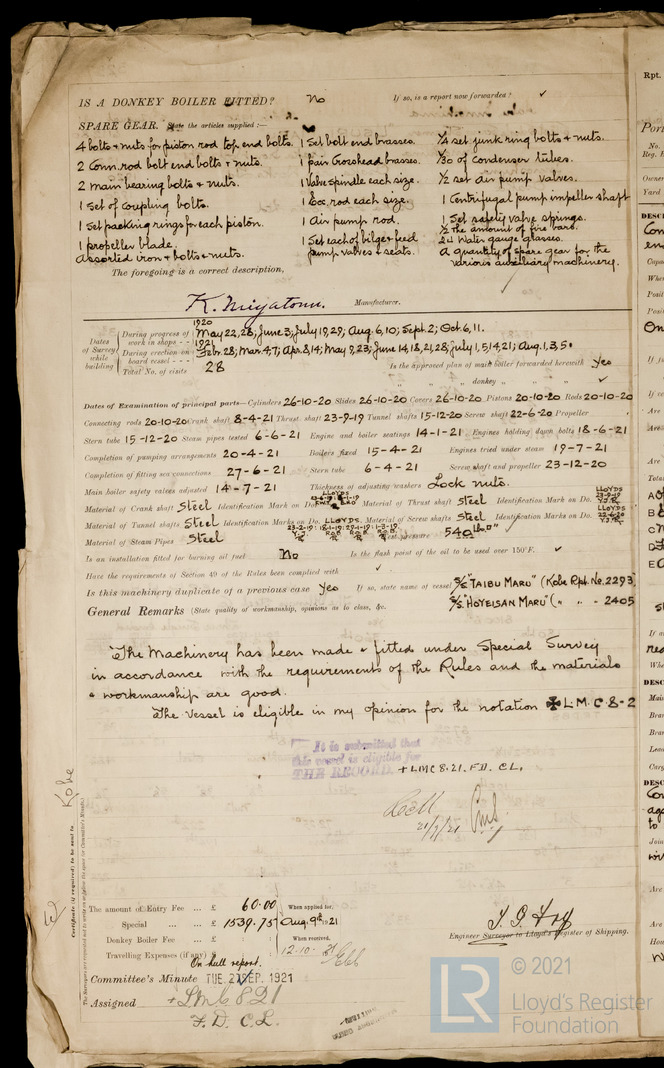 IS A DONKEY BOILER FITTED? No If so, is a report now forwarded? ✓
SPARE GEAR. State the articles supplied :—
4 bolts & nuts for piston rod top end bolts. 1 Set bolt end brasses. 1/4 set junk ring bolts & nuts.
2 Conn rod bolt end bolts & nuts. 1 pair Crosshead brasses. 1/30 of Condenser tubes.
2 main bearing bolts & nuts. 1 Valve spindle each size. 1/2 set air pump valves.
1 Set of Coupling bolts. 1 Ecc. rod each size. 1 Centrifugal pump impeller shaft
1 Set packing rings for each piston. 1 Air pump rod. 1 Set safety valve springs.
1 propeller blade. 1 Set each of bilge & feed 1/2 The amount of fire bars.
Assorted iron & bolts & nuts. pump valves & seats. 24 Water gauge glasses.
A quantity of spare gear for the
various auxiliary machinery.
The foregoing is a correct description,
K. Miyatomi. Manufacturer.
Dates of Survey while building
During progress of work in shops - - 1920 May 22, 26; June 3; July 19, 29; Aug. 6, 10; Sept. 2; Oct. 6, 11.
During erection on board vessel - - - 1921 Febr. 28; Mar. 4, 7; Apr. 8, 14; May 9, 23; June 14, 18, 21, 28; July 1, 5, 14, 21; Aug. 1, 3, 5.
Total No. of visits 28 Is the approved plan of main boiler forwarded herewith Yes
" " " donkey " " " ✓
Dates of Examination of principal parts—Cylinders 26-10-20 Slides 26-10-20 Covers 26-10-20 Pistons 20-10-20 Rods 20-10-20
Connecting rods 20-10-20 Crank shaft 8-4-21 Thrust shaft 23-9-19 Tunnel shafts 15-12-20 Screw shaft 22-6-20 Propeller
Stern tube 15-12-20 Steam pipes tested 6-6-21 Engine and boiler seatings 14-1-21 Engines holding down bolts 18-6-21
Completion of pumping arrangements 20-4-21 Boilers fixed 15-4-21 Engines tried under steam 19-7-21
Completion of fitting sea connections 27-6-21 Stern tube 6-4-21 Screw shaft and propeller 23-12-20
Main boiler safety valves adjusted 14-7-21 Thickness of adjusting washers Lock nuts.
Material of Crank shaft Steel Identification Mark on Do. LLOYDS Material of Thrust shaft Steel Identification Mark on Do. LLOYDS 23-9-19
Material of Tunnel shafts Steel Identification Marks on Do. LLOYDS. Material of Screw shafts Steel Identification Marks on Do. LLOYDS 22-6-20
Material of Steam Pipes Steel Test pressure 540 lbs □"
Is an installation fitted for burning oil fuel No Is the flash point of the oil to be used over 150°F. ✓
Have the requirements of Section 49 of the Rules been complied with ✓
Is this machinery duplicate of a previous case Yes If so, state name of vessel S/s. "TAIBU MARU" (Kobe Rpt. No. 2293)
General Remarks (State quality of workmanship, opinions as to class, &c. S/s. "HOYEISAN MARU" ( " " - 2405
The Machinery has been made & fitted under Special Survey
in accordance with the requirements of the Rules and the materials
& workmanship are good.
The vessel is eligible in my opinion for the notation ✠ L.M.C. 8-2
It is submitted that
this vessel is eligible for
THE RECORD. + LMC 8.21. F.D. C.L.
21/9/21
Kobe
Certificate (if required) to be sent to
The amount of Entry Fee ... £ 60.00 When applied for,
Special ... ... £ 1539.75 Aug. 9th 1921
Donkey Boiler Fee ... £ When received,
Travelling Expenses (if any) £ 12.10.21
On hull report.
Engineer Surveyor to Lloyd's Register of Shipping.
Committee's Minute TUE. 27 SEP. 1921
Assigned + LMC 8.21
F.D. C.L.
© 2021
LR Lloyd's Register
Foundation
Rpt.